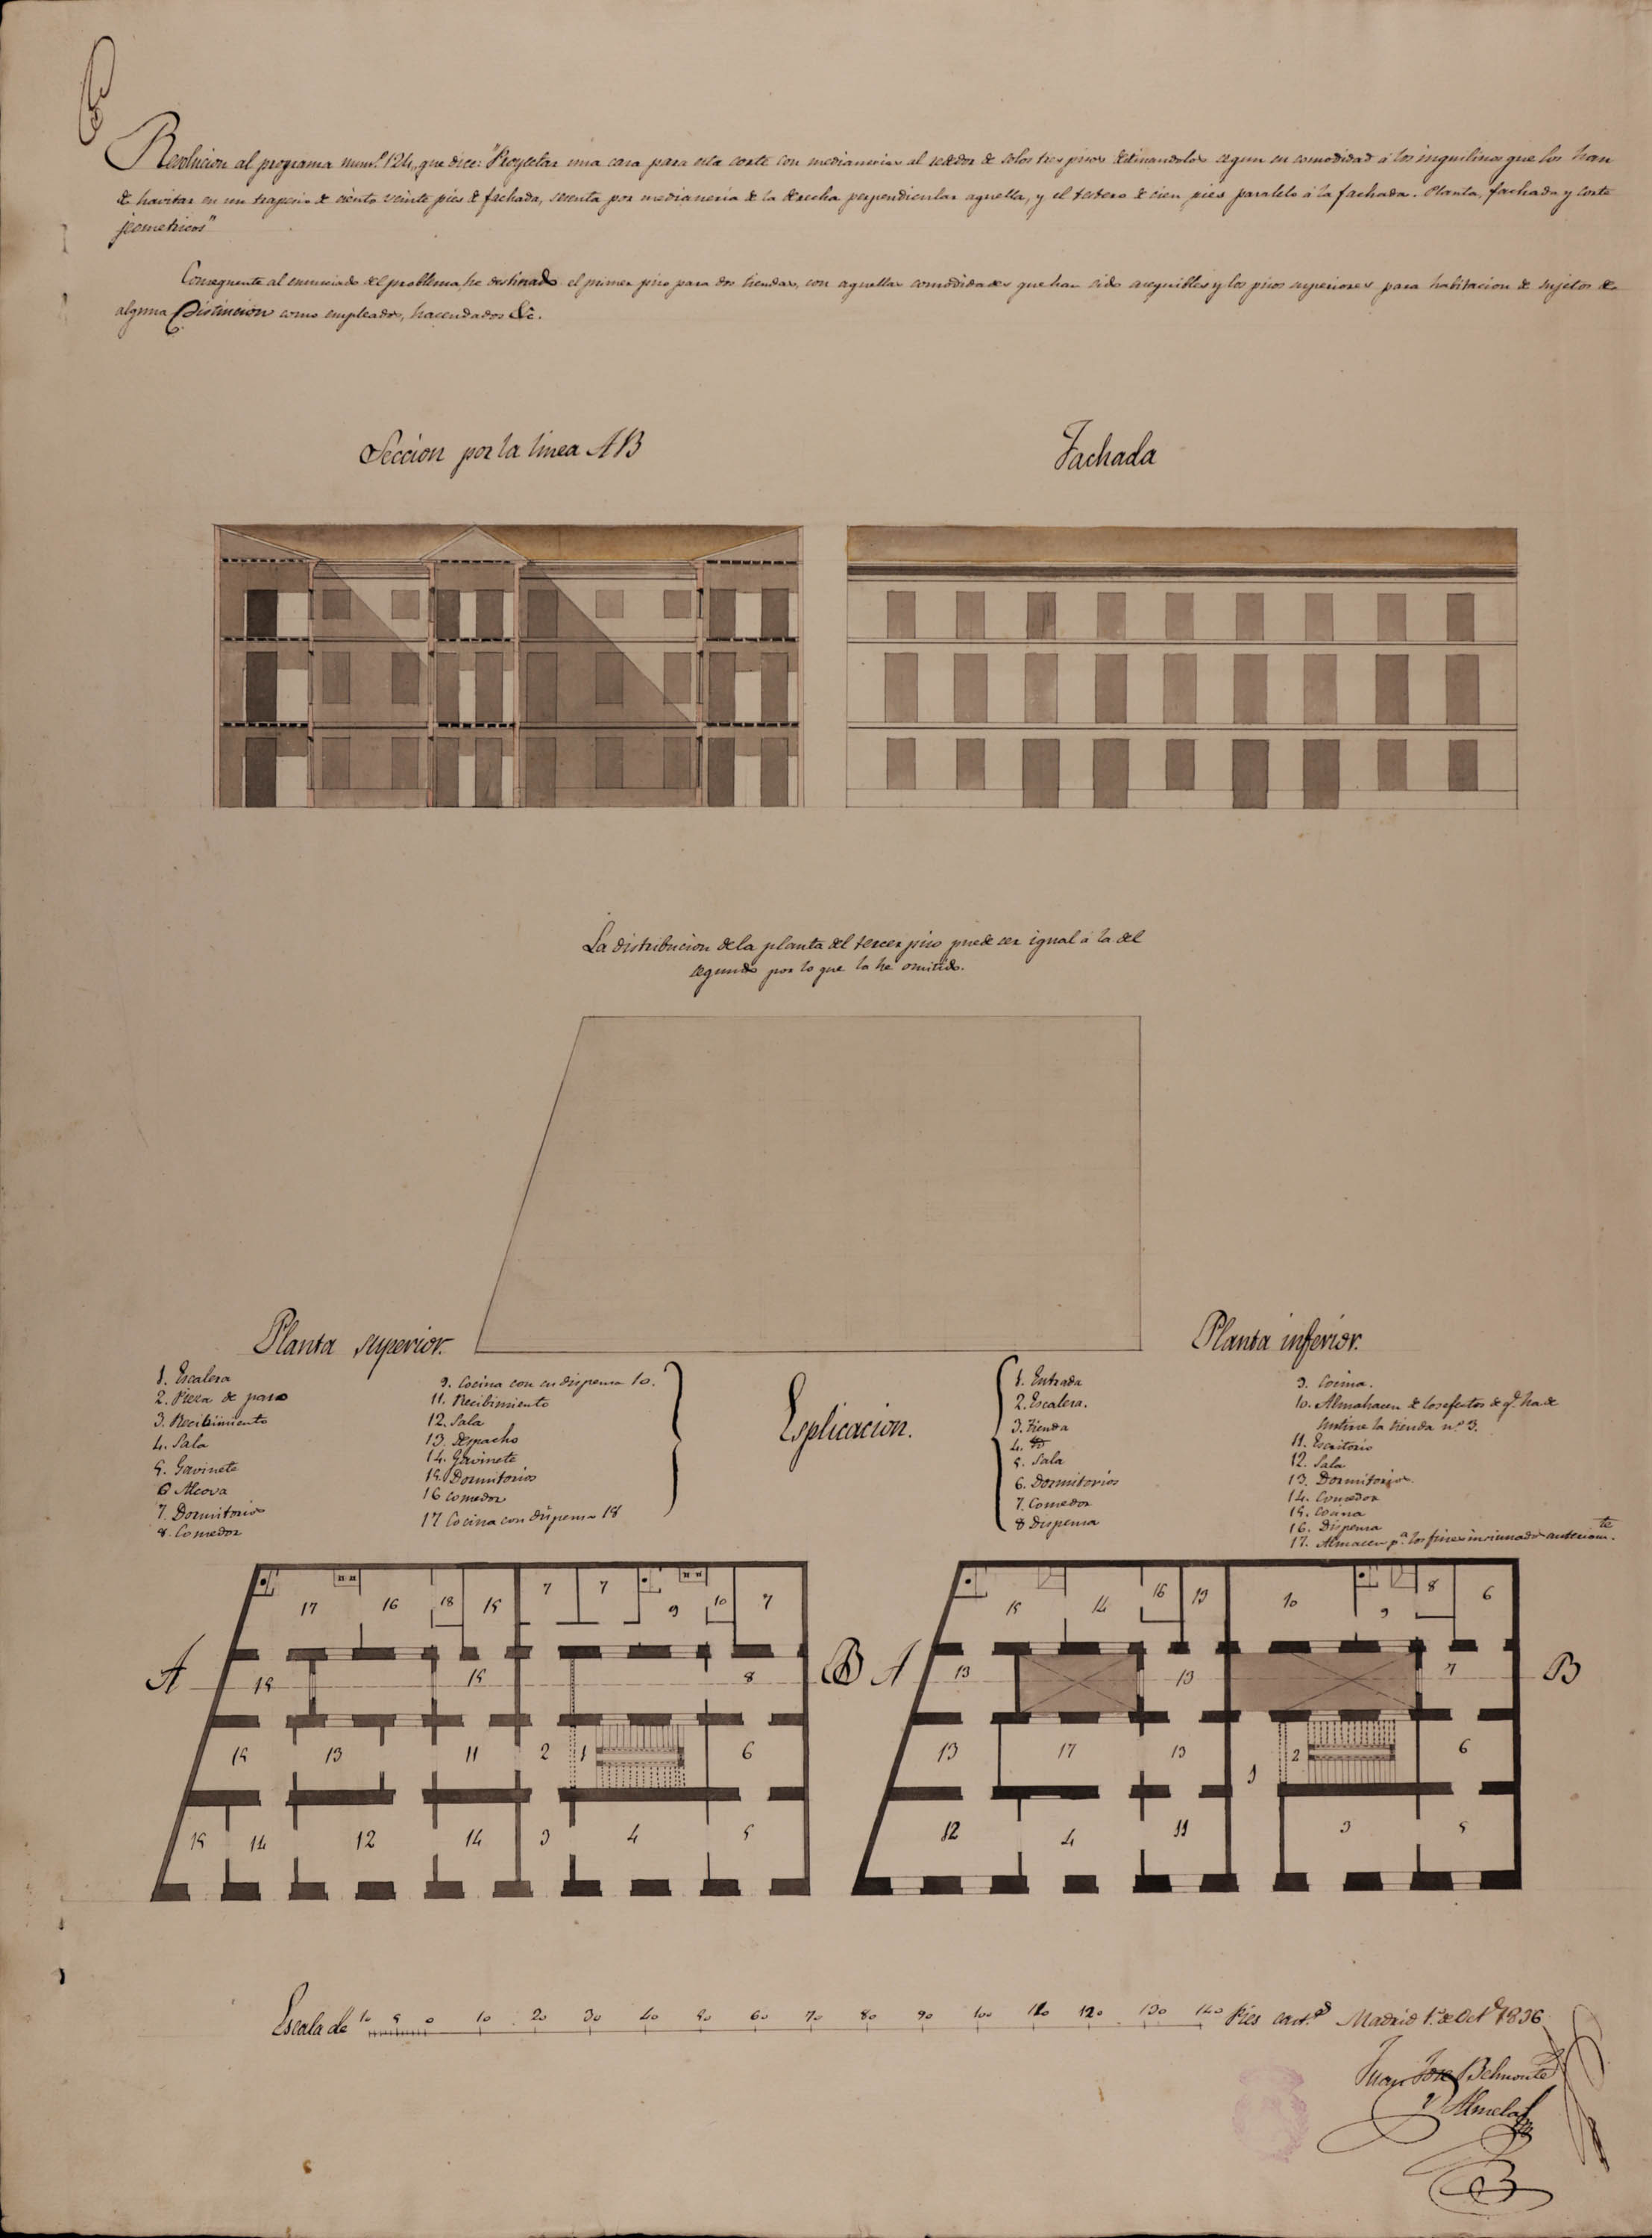 Resolucion al programa num.º 124, que dice: "Proyectar una casa para esta corte con medianerias al rededor de solos tres pisos destinandolos segun su comodidad á los inquilinos que los han
de havitar en un trapecio de ciento veinte pies de fachada, sesenta por medianeria de la derecha perpendicular aquella, y el testero de cien pies paralelo á la fachada. Planta, fachada y corte
jeometricos"
Consequente al enunciado del problema, he destinado el primer piso para dos tiendas, con aquellas comodidades que han sido asequibles y los pisos superiores para habitacion de sujetos de
alguna Distincion como empleados, hacendados &c.
Seccion por la linea AB
Fachada
La distribucion de la planta del tercer piso puede ser igual á la del
segundo por lo que la he omitido.
Planta superior.
1. Escalera
2. Pieza de paso
3. Recibimiento
4. Sala
5. Gavinete
6 Alcova
7. Dormitorios
8. Comedor
9. Cocina con su dispensa 10.
11. Recibimiento
12. Sala
13. Despacho
14. Gavinete
15. Dormitorios
16 comedor
17 Cocina con dispensa 18
Esplicacion.
Planta inferior.
1. Entrada
2. Escalera.
3. Tienda
4. Yd
5. Sala
6. Dormitorios
7. Comedor
8 Dispensa
9. Cocina.
10. Almahacen de los efectos de q.e ha de
surtirse la tienda nº 3.
11. Escritorio
12. Sala
13. Dormitorios
14. Comedor
15. Cocina
16. Dispensa
17. Almacen p.a los fines insinuados anteriorm.te
17 16 18 15 7 7 9 10 7
A 15 15 8 B
15 13 11 2 1 6
15 14 12 14 3 4 5
15 14 16 13 10 9 8 6
A 13 13 7 B
13 17 13 1 2 6
12 4 11 3 5
Escala de 10 5 0 10 20 30 40 50 60 70 80 90 100 110 120 130 140 Pies cast.s Madrid 1.º de Oct.e 1836
Juan José Belmonte
y Almela